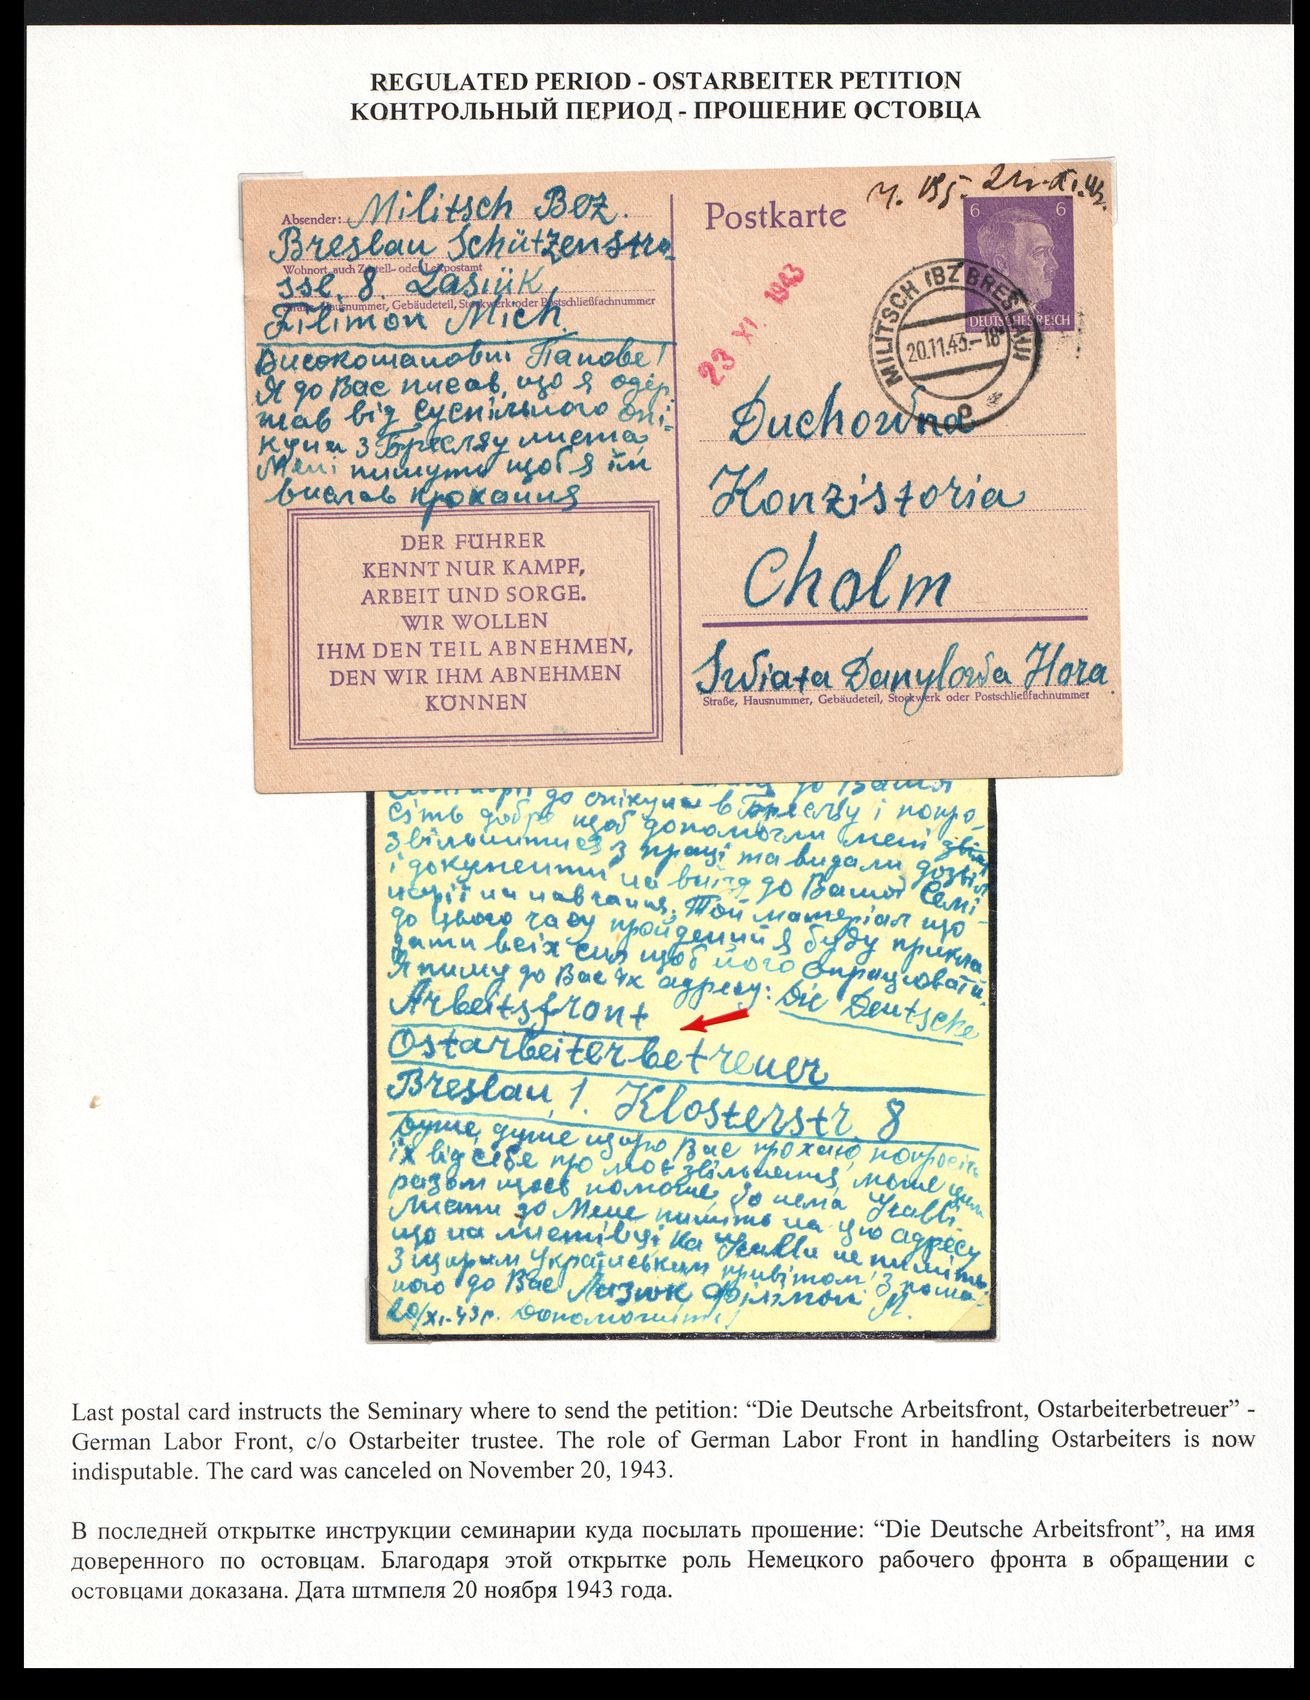 REGULATED PERIOD - OSTARBEITER PETITION
КОНТРОЛЬНЫЙ ПЕРИОД - ПРОШЕНИЕ ОСТОВЦА
Absender: Militsch Bez.
Breslau Schützenstra
Wohnort, auch Zustell- oder Leitpostamt
sse, 8. Lasiük,
Straße, Hausnummer, Gebäudeteil, Stockwerk oder Postschließfachnummer
Filimon Mich.
Високошановні Панове!
Я до Вас писав, що я одер
жав від суспільного опі-
куна з Бреслау листа,
Мені пишуть щоб я їм
вислав прохання
DER FÜHRER
KENNT NUR KAMPF,
ARBEIT UND SORGE.
WIR WOLLEN
IHM DEN TEIL ABNEHMEN,
DEN WIR IHM ABNEHMEN
KÖNNEN
Postkarte
6 6
DEUTSCHES REICH
MILITSCH (BZ BRESLAU)
20.11.43.-18
23 XI. 1943
Duchowna
Konzistoria
Cholm
Swiata Danylowa Hora
Straße, Hausnummer, Gebäudeteil, Stockwerk oder Postschließfachnummer
до опікуна в Бреслау і попро-
сіть добре щоб допомогли мені
звільнитися з праці та видали дозвіл
і документи на виїзд до Вашої Семі-
нарії на навчання. Той матеріал що
до цього часу пройдений я буду прикла
дати всіх сил щоб його опрацювати.
Я пишу до Вас їх адресу: Die Deutsche
Arbeitsfront
Ostarbeiterbetreuer
Breslau, 1. Klosterstr. 8
Дуже, дуже щиро Вас прохаю, попросіть
їх від себе про моє звільнення, може
разом щось поможе, бо нема
Листи до Мене пишіть на цю адресу
що на листівці на не пишіть.
З щирим Українським привітом!
до Вас Лазюк Філімон М.
20/XI-43р. Допоможіть!
Last postal card instructs the Seminary where to send the petition: “Die Deutsche Arbeitsfront, Ostarbeiterbetreuer” -
German Labor Front, c/o Ostarbeiter trustee. The role of German Labor Front in handling Ostarbeiters is now
indisputable. The card was canceled on November 20, 1943.
В последней открытке инструкции семинарии куда посылать прошение: “Die Deutsche Arbeitsfront”, на имя
доверенного по остовцам. Благодаря этой открытке роль Немецкого рабочего фронта в обращении с
остовцами доказана. Дата штмпеля 20 ноября 1943 года.